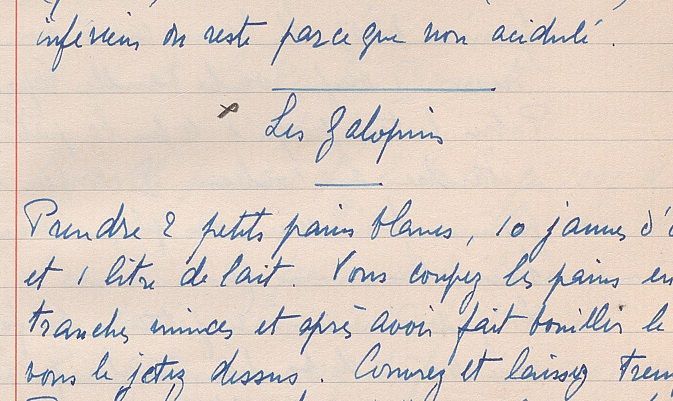 inférieur au reste parce que non acidulé.
Les Galopins
Prendre 2 petits pains blancs, 10 jaunes d'
et 1 litre de lait. Vous coupez les pains en
tranches minces et après avoir fait bouillir le
vous le jetez dessus. Couvrez et laissez trem